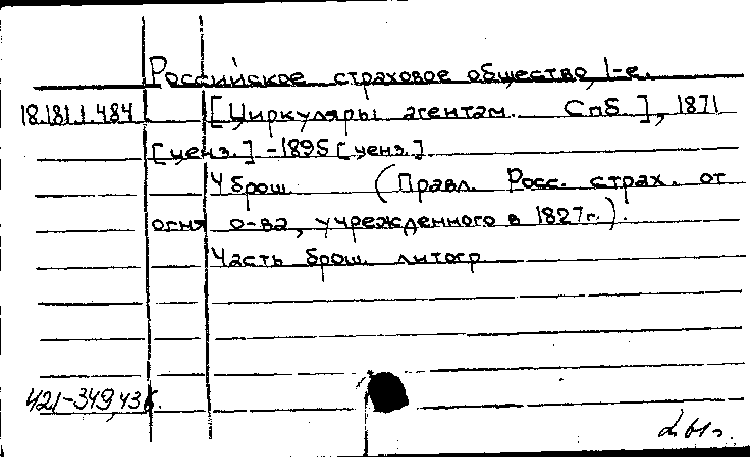 Российское страховое общество, 1-е.
18.181.1.484 [Циркуляры агентам. СпБ.], 1871
[ценз.] - 1895 [ценз.]
4 брош. (Правл. Росс. страх. от
огня о-ва, учрежденного в 1827 г.).
Часть брош. литогр
421-349,43